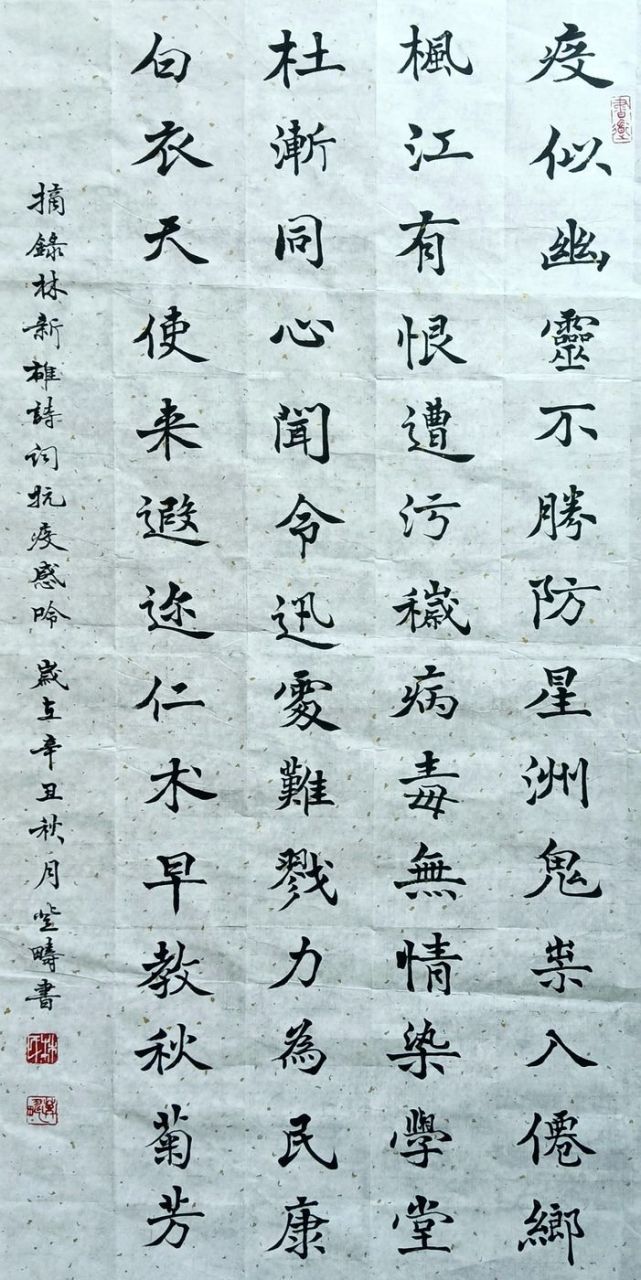 疫似幽靈不勝防星洲鬼祟入僊鄉
楓江有恨遭污穢病毒無情染學堂
杜漸同心聞令迅處難戮力為民康
白衣天使来遐迩仁术早教秋菊芳
摘錄林新雄詩詞抗疫感吟 歲在辛丑秋月 疇書